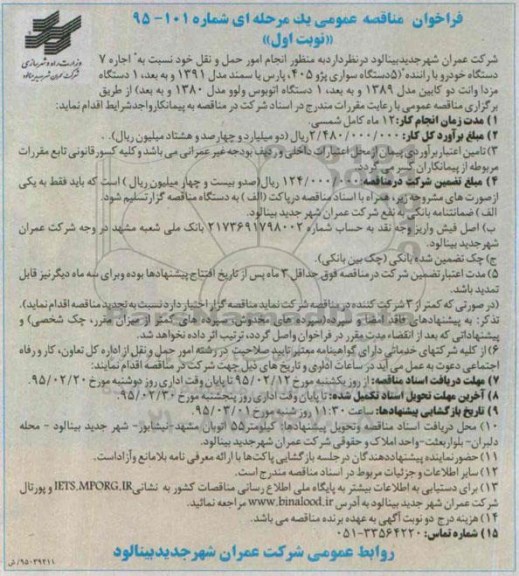 فراخوان مناقصه عمومی یك مرحله ای شماره ۱۰۱- ۹۵
«(نوبت اول)»
وزارت راه و شهرسازی
شرکت عمران شهر جدید بینالود
شرکت عمران شهر جدید بینالود در نظر دارد به منظور انجام امور حمل و نقل خود نسبت به" اجاره ۷
دستگاه خودرو با راننده"(۵دستگاه سواری پژو ۴۰۵، پارس یا سمند مدل ۱۳۹۱ و به بعد، ۱ دستگاه
مزدا وانت دو کابین مدل ۱۳۸۹ و به بعد، ۱ دستگاه اتوبوس ولوو مدل ۱۳۸۰ و به بعد) از طریق
برگزاری مناقصه عمومی با رعایت مقررات مندرج در اسناد شرکت در مناقصه به پیمانکار واجد شرایط اقدام نماید:
۱) مدت زمان انجام کار: ۱۲ ماه کامل شمسی.
۲) مبلغ برآورد کل کار: ۲/۴۸۰/۰۰۰/۰۰۰ ریال (دو میلیارد و چهارصد و هشتاد میلیون ریال).
۳) تامین اعتبار برآوردی پیمان از محل اعتبارات داخلی و ردیف بودجه غیر عمرانی می باشد و کلیه کسور قانونی تابع مقررات
مربوطه از پیمانکاران کسر می گردد.
۴) مبلغ تضمین شرکت در مناقصه ۱۲۴/۰۰۰/۰۰۰ ریال(صدو بیست و چهار میلیون ریال ) است که باید فقط به یکی
از صورت های مشروحه زیر همراه با اسناد مناقصه درپاکت (الف) به دستگاه مناقصه گزار تسلیم شود.
الف ) ضمانتنامه بانکی به نفع شرکت عمران شهر جدید بینالود.
ب) اصل فیش واریز وجه نقد به حساب شماره ۲۱۷۳۶۹۱۷۹۸۰۰۲ بانک ملی شعبه مشهد در وجه شرکت عمران
شهر جدید بینالود.
ج) چک تضمین شده بانکی (چک بین بانکی).
۵) مدت اعتبار تضمین شرکت در مناقصه فوق حداقل ۳ ماه پس از تاریخ افتتاح پیشنهادها بوده و برای سه ماه دیگر نیز قابل
تمدید باشد.
(در صورتی که کمتر از ۳ شرکت کننده در مناقصه شرکت نماید مناقصه گزار اختیار دارد نسبت به تجدید مناقصه اقدام نماید).
تذکر: به پیشنهادهای فاقد امضا و سپرده (سپرده های مخدوش، سپرده های کمتر از میزان مقرر، چک شخصی) و
پیشنهاداتی که بعد از انقضاء مدت مقرر در فراخوان واصل گردد، ترتیب اثر داده نخواهد شد.
۶) از کلیه شرکتهای خدماتی دارای گواهینامه معتبر تایید صلاحیت در رشته امور حمل و نقل از اداره کل تعاون، کار و رفاه
اجتماعی دعوت به عمل می آید در ساعات اداری و تاریخ های ذیل جهت شرکت در مناقصه اقدام نمایند:
۷) مهلت دریافت اسناد مناقصه: از روز یکشنبه مورخ ۹۵/۰۲/۱۲ تا پایان وقت اداری روز دوشنبه مورخ ۹۵/۰۲/۲۰.
۸) آخرین مهلت تحویل اسناد تکمیل شده: تا پایان وقت اداری روز پنجشنبه مورخ ۹۵/۰۲/۳۰.
۹) تاریخ بازگشایی پیشنهادها: ساعت ۱۱:۳۰ روز شنبه مورخ ۹۵/۰۳/۰۱.
۱۰) محل دریافت اسناد مناقصه وتحویل پیشنهادها: کیلومتر ۵۵ اتوبان مشهد-نیشابور- شهر جدید بینالود - محله
دلبران- بلوار بعثت- واحد املاک و حقوقی شرکت عمران شهر جدید بینالود.
۱۱) حضور نماینده پیشنهاددهندگان در جلسه بازگشایی پاکت ها با ارائه معرفی نامه بلامانع و آزاد است.
۱۲) سایر اطلاعات و جزئیات مربوط در اسناد مناقصه مندرج است.
۱۳) برای دستیابی به اطلاعات بیشتر به پایگاه ملی اطلاع رسانی مناقصات کشور به نشانی IETS.MPORG.IR و پورتال
شرکت عمران شهر جدید بینالود به آدرس www.binalood.ir مراجعه نمائید.
۱۴) هزینه درج دو نوبت آگهی به عهده برنده مناقصه می باشد.
۱۵) شماره تماس: ۳۳۵۶۴۲۲۰-۰۵۱
روابط عمومی شرکت عمران شهر جدید بینالود
۹۵۰۲۹۲۱۱/ش